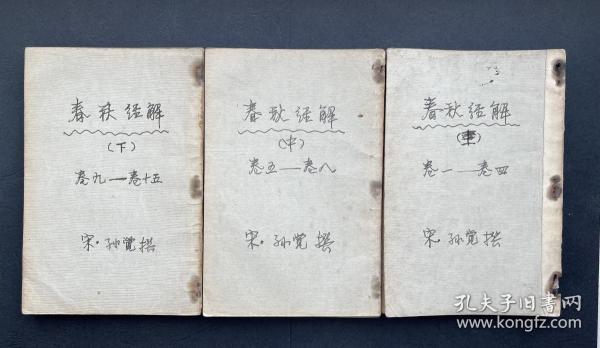 春秋经解
（下）
卷九——卷十五
宋·孙觉撰
春秋经解
（中）
卷五——卷八
宋·孙觉撰
春秋经解
卷一——卷四
宋·孙觉撰
孔夫子旧书网
www.kongfz.com